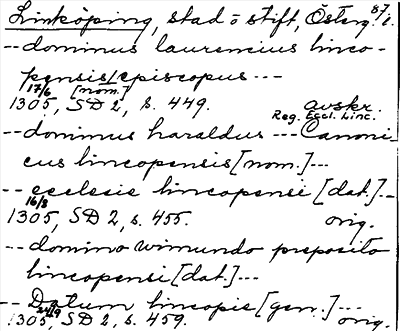 Linköping, stad o stift, Österg. l. 87
-- dominus laurencius linco-
pensis episcopus ---
17/6 [nom.]
1305, SD 2, s. 449. avskr.
Reg. Eccl. Linc.
-- dominus haraldus --- Canoni-
cus lincopensis [nom.] ---
-- ecclesie lincopensi [dat.] --
16/8
1305, SD 2, s. 455. orig.
-- domino wimundo preposito
lincopensi [dat.] ---
-- Datum lincopie [gen.] ---
24/9
1305, SD 2, s. 459. orig.